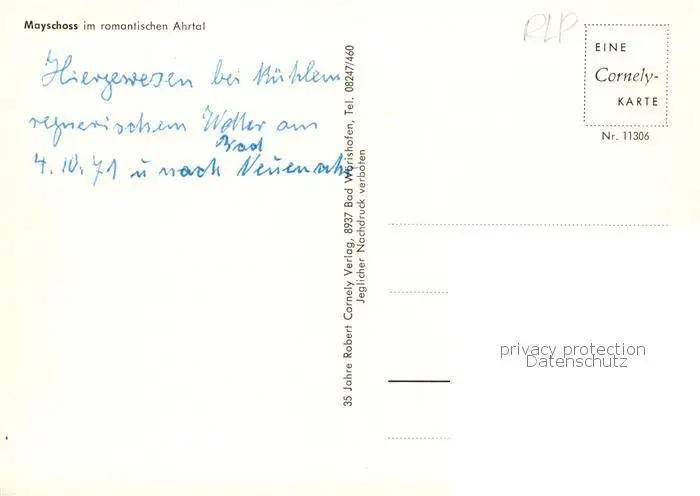 Mayschoss im romantischen Ahrtal
Hiergewesen bei kühlem
regnerischem Wetter am
4.10.71 u nach Bad Neuenahr
35 Jahre Robert Cornely Verlag, 8937 Bad Wörishofen, Tel. 08247/460
Jeglicher Nachdruck verboten
RLP
EINE
Cornely-
KARTE
Nr. 11306
privacy protection
Datenschutz